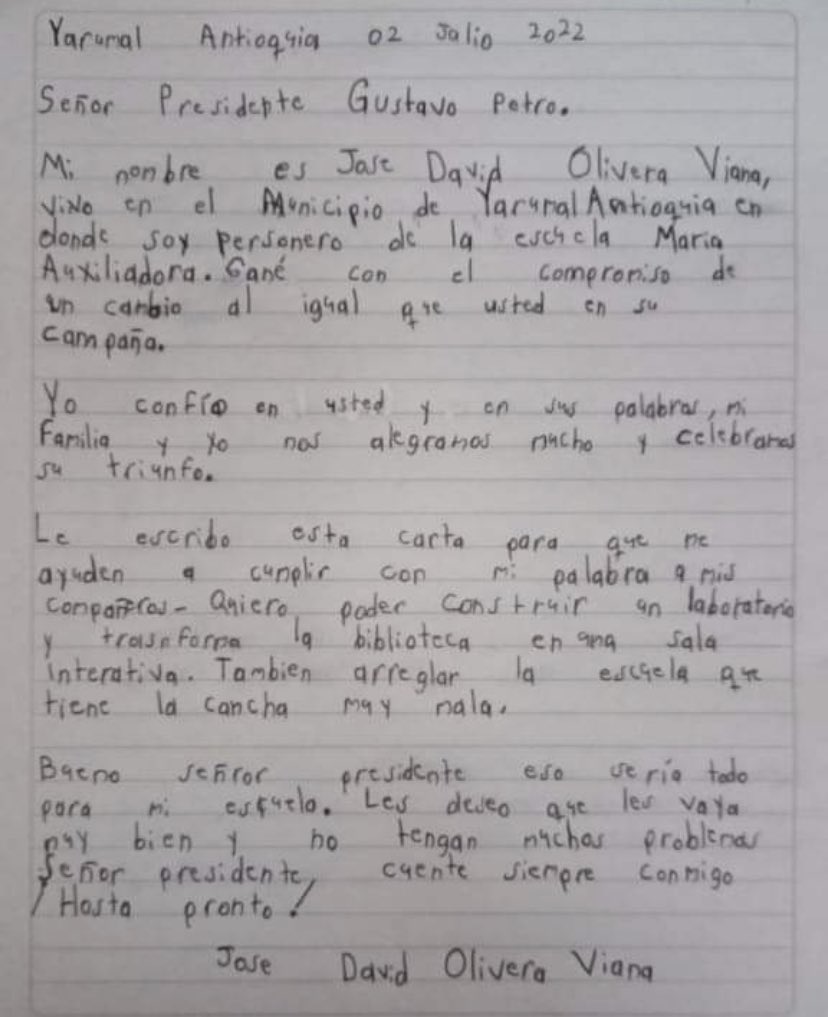 Yarumal Antioquia 02 Julio 2022
Señor Presidente Gustavo Petro.
Mi nombre es Jose David Olivera Viana,
vivo en el Municipio de Yarumal Antioquia en
donde soy personero de la escuela Maria
Auxiliadora. Gané con el compromiso de
un cambio al igual que usted en su
campaña.
Yo confío en usted y en sus palabras, mi
Familia y yo nos alegramos mucho y celebramos
su triunfo.
Le escribo esta carta para que me
ayuden a cumplir con mi palabra a mis
compañeros - Quiero poder construir un laboratorio
y trasnforma la biblioteca en una sala
interativa. Tambien arreglar la escuela que
tiene la cancha muy mala.
Bueno señror presidente eso seria todo
para mi escuela. Les deseo que les vaya
muy bien y no tengan muchos problemas
Señor presidente, cuente siempre conmigo
¡Hasta pronto!
Jose David Olivera Viana